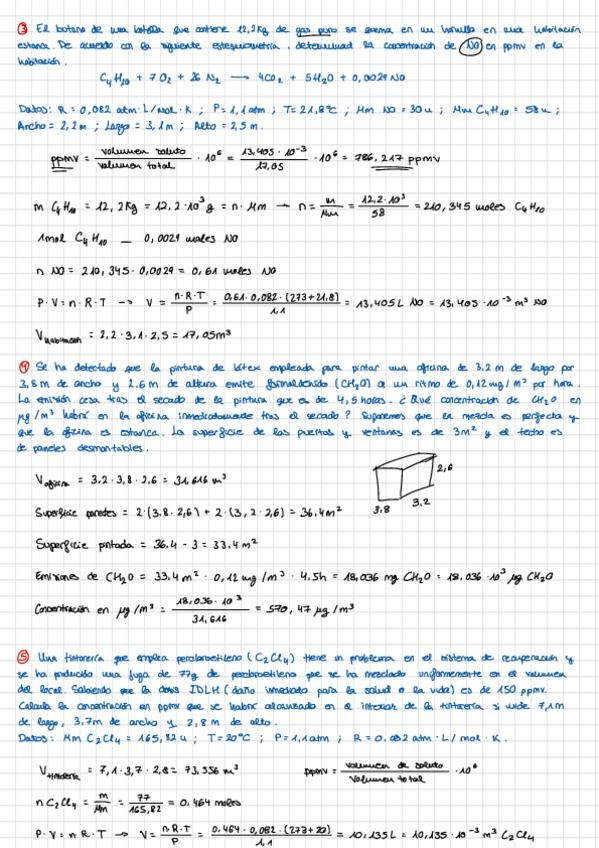 ③ El butano de una botella que contiene 12,2Kg de gas puro se quema en un hornillo en una habitación
estanca. De acuerdo con la siguiente estequiometría, determinad la concentración de NO en ppmv en la
habitación.
C₄H₁₀ + 7O₂ + 26 N₂ → 4CO₂ + 5H₂O + 0,0029 NO
Datos: R = 0,082 atm·L/mol·K ; P = 1,1 atm ; T = 21,8ºC ; Mm NO = 30u ; Mm C₄H₁₀ = 58u ;
Ancho = 2,2m ; Largo = 3,1m ; Alto = 2,5m.
ppmv = volumen soluto / volumen total · 10⁶ = 13,405·10⁻³ / 17,05 · 10⁶ = 786,217 ppmv
m C₄H₁₀ = 12,2Kg = 12,2·10³g = n·Mm → n = m/Mm = 12,2·10³/58 = 210,345 moles C₄H₁₀
1mol C₄H₁₀ — 0,0029 moles NO
n NO = 210,345·0,0029 = 0,61 moles NO
P·V = n·R·T → V = n·R·T/P = 0,61·0,082·(273+21,8)/1,1 = 13,405L NO = 13,405·10⁻³ m³ NO
V habitación = 2,2·3,1·2,5 = 17,05m³
④ Se ha detectado que la pintura de látex empleada para pintar una oficina de 3,2 m de largo por
3,8m de ancho y 2,6m de altura emite formaldehído (CH₂O) a un ritmo de 0,12mg/m³ por hora.
La emisión cesa tras el secado de la pintura que es de 4,5 horas. ¿Qué concentración de CH₂O en
μg/m³ habrá en la oficina inmediatamente tras el secado? Suponemos que la mezcla es perfecta y
que la oficina es estanca. La superficie de las puertas y ventanas es de 3m² y el techo es
de paneles desmontables.
V oficina = 3,2·3,8·2,6 = 31,616 m³
2,6
3,8
3,2
Superficie paredes = 2·(3,8·2,6) + 2·(3,2·2,6) = 36,4m²
Superficie pintada = 36,4 - 3 = 33,4m²
Emisiones de CH₂O = 33,4m² · 0,12mg/m³ · 4,5h = 18,036 mg CH₂O = 18,036·10³ μg CH₂O
Concentración en μg/m³ = 18,036·10³ / 31,616 = 570,47 μg/m³
⑤ Una tintorería que emplea percloroetileno (C₂Cl₄) tiene un problema en el sistema de recuperación y
se ha producido una fuga de 77g de percloroetileno que se ha mezclado uniformemente en el volumen
del local. Sabiendo que la dosis IDLH (daño inmediato para la salud o la vida) es de 150 ppmv.
Calcula la concentración en ppmv que se habrá alcanzado en el interior de la tintorería si mide 7,1m
de largo, 3,7m de ancho y 2,8m de alto.
Datos: Mm C₂Cl₄ = 165,82u ; T = 20ºC ; P = 1,1 atm ; R = 0,082 atm·L/mol·K.
V tintorería = 7,1·3,7·2,8 = 73,556 m³
ppmv = volumen de soluto / volumen total · 10⁶
n C₂Cl₄ = m/Mm = 77/165,82 = 0,464 moles
P·V = n·R·T → V = n·R·T/P = 0,464·0,082·(273+20)/1,1 = 10,135L = 10,135·10⁻³ m³ C₂Cl₄